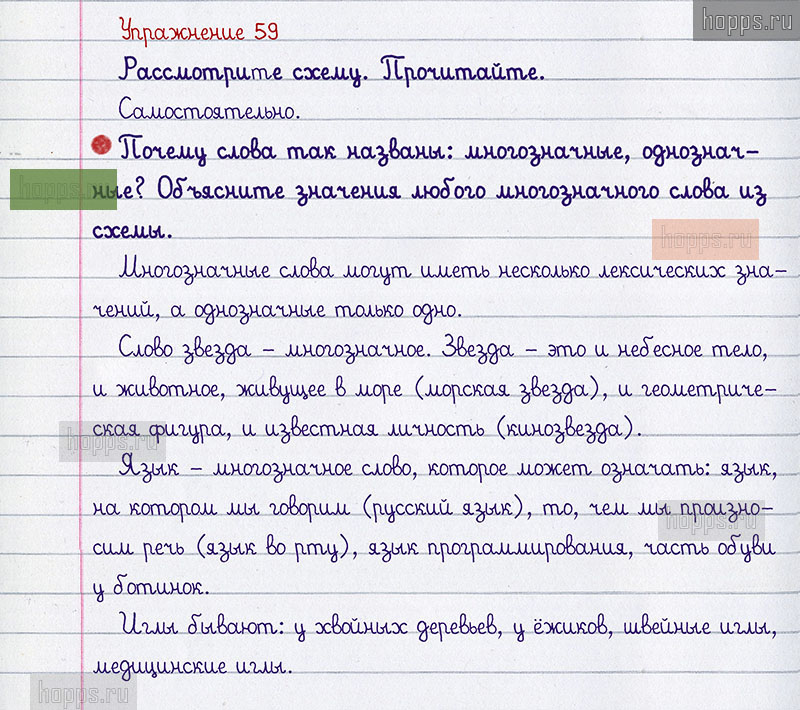 hopps.ru
Упражнение 59
Рассмотрите схему. Прочитайте.
Самостоятельно.
Почему слова так названы: многозначные, однознач-
ные? Объясните значения любого многозначного слова из
hopps.ru
схемы.
hopps.ru
Многозначные слова могут иметь несколько лексических зна-
чений, а однозначные только одно.
Слово звезда – многозначное. Звезда – это и небесное тело,
и животное, живущее в море (морская звезда), и геометриче-
ская фигура, и известная личность (кинозвезда).
hopps.ru
Язык – многозначное слово, которое может означать: язык,
на котором мы говорим (русский язык), то, чем мы произно-
hopps.ru
сим речь (язык во рту), язык программирования, часть обуви
у ботинок.
Иглы бывают: у хвойных деревьев, у ёжиков, швейные иглы,
медицинские иглы.
hopps.ru